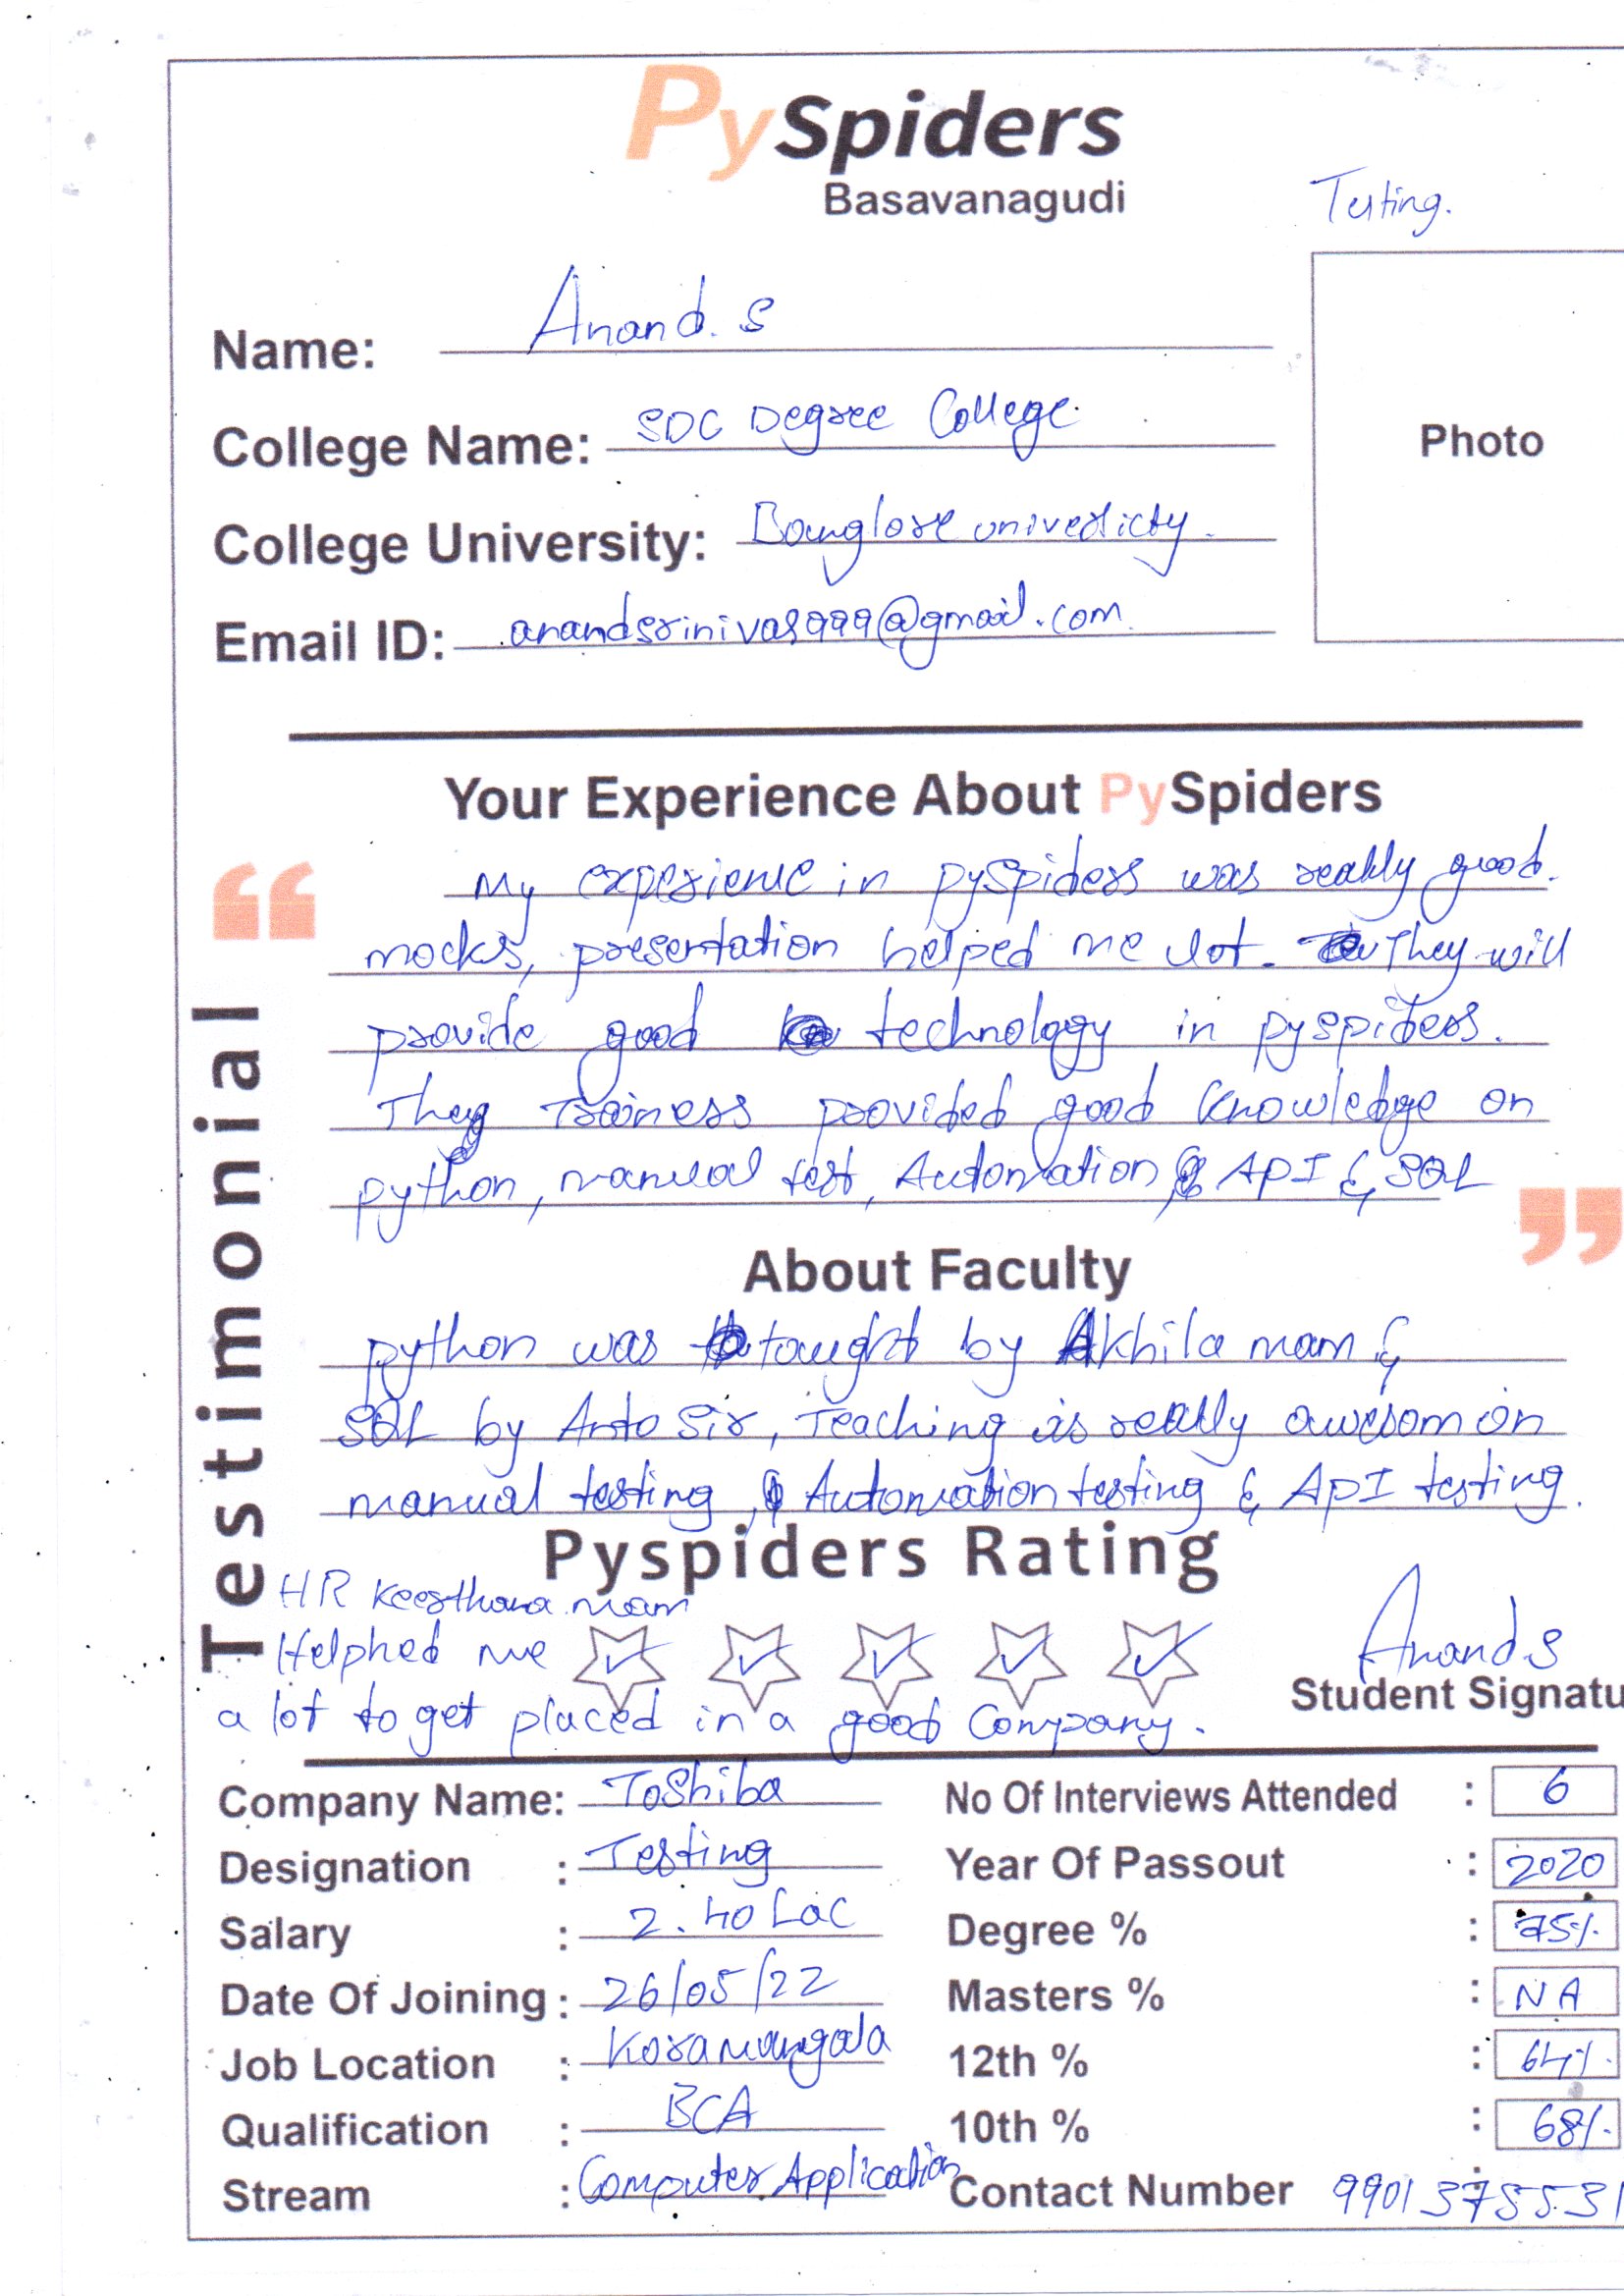 PySpiders
Basavanagudi
Testing.
Name: Anand. S
College Name: SDC Degree College
Photo
College University: Banglore univesicty.
Email ID: anandsrinivas999@gmail.com
Your Experience About PySpiders
My experience in pyspiders was really good.
mocks, presentation helped me lot. They will
provide good technology in pyspiders.
They Trainess provided good knowledge on
python, manual test, Automation, API & SQL
Testimonial
About Faculty
python was taught by Akhila mam &
SQL by Anto Sir, Teaching is really awesom on
manual testing, Automation testing & API testing.
Pyspiders Rating
HR Keerthana mam
Helphed me
a lot to get placed in a good Company.
Anand.S
Student Signatu
Company Name: Toshiba
No Of Interviews Attended : 6
Designation : Testing
Year Of Passout : 2020
Salary : 2.40 Lac
Degree % : 75%
Date Of Joining : 26/05/22
Masters % : NA
Job Location : Koramangala
12th % : 64%
Qualification : BCA
10th % : 68%
Stream : Computer Application
Contact Number : 9901375531